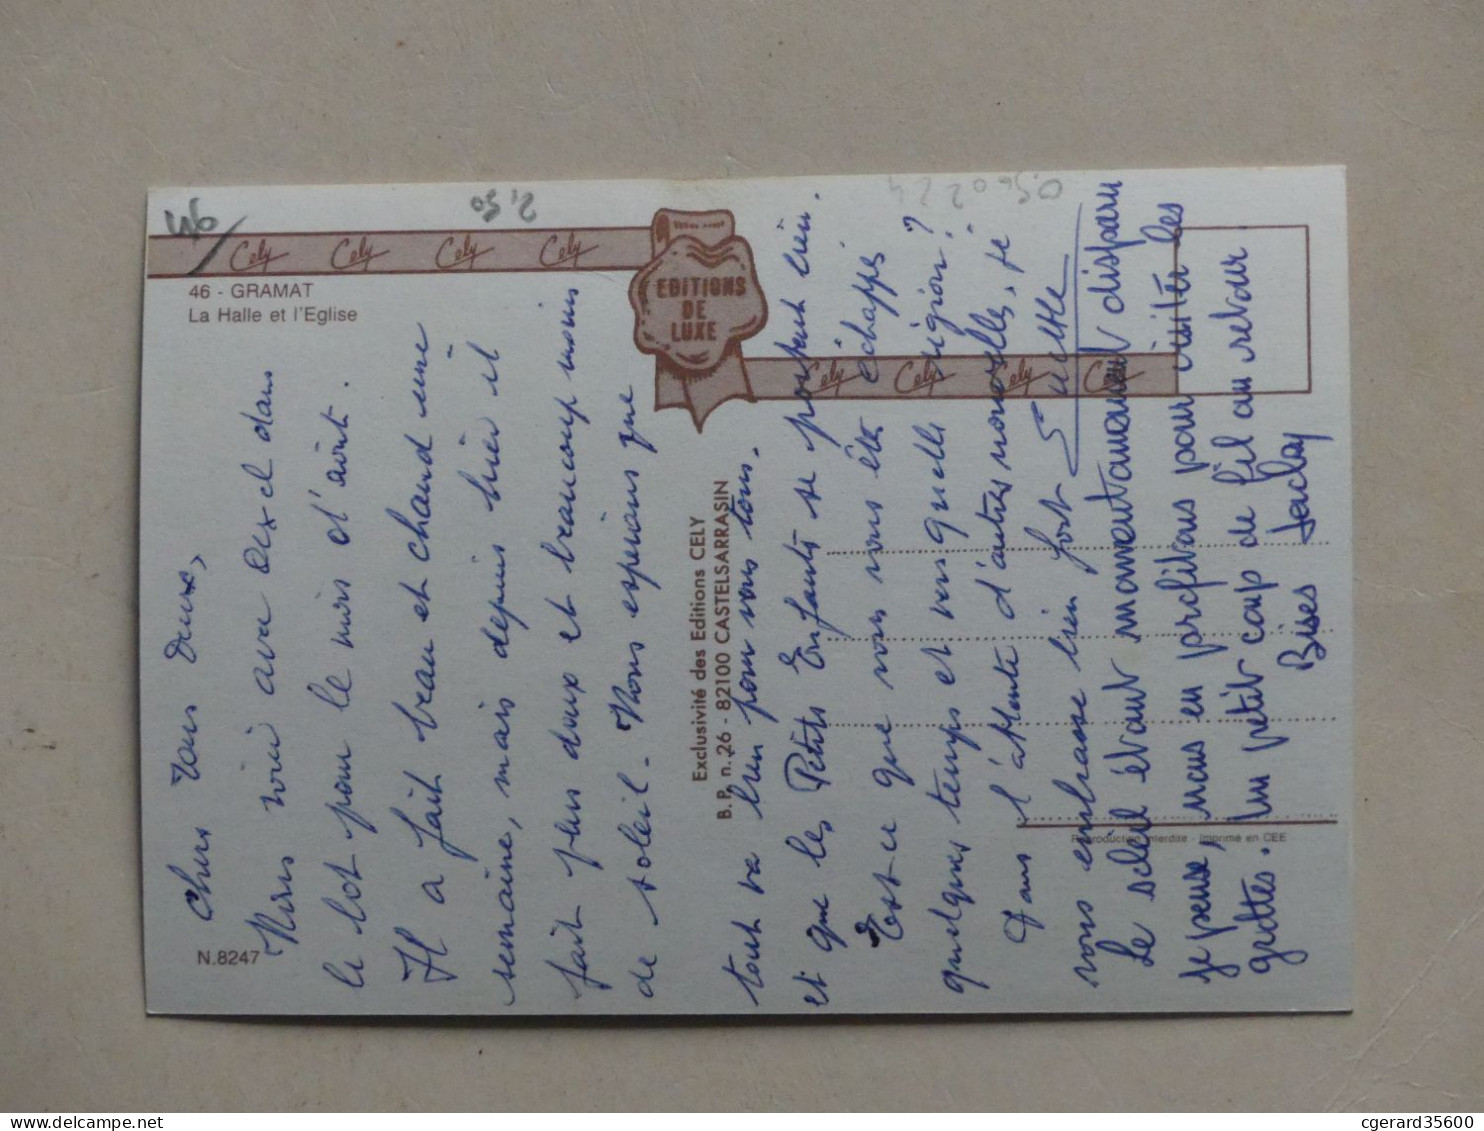 46
2,50
0560224
Cely Cely Cely Cely
46 - GRAMAT
La Halle et l'Eglise
EDITIONS
DE
LUXE
Cely Cely Cely Cely
N.8247
Exclusivité des Editions CELY
B.P. n. 26 - 82100 CASTELSARRASIN
Reproduction interdite - Imprimé en CEE
Chers vous Deux,
Nous voici avec Axel dans
le lot pour le mois d'août.
Il a fait beau et chaud une
semaine, mais depuis hier il
fait plus doux et beaucoup moins
de soleil. Nous espérons que
tout va bien pour vous tous.
et que les Petits Enfants se portent bien.
Est-ce que vous vous êtes échappés
quelques temps et vers quelle région?
Dans l'attente d'autres nouvelles, je
vous embrasse bien fort
Le soleil étant momentanément disparu
je pense, nous en profitons pour visiter les
grottes. Un petit coup de fil au retour.
Bises
cgerard35600